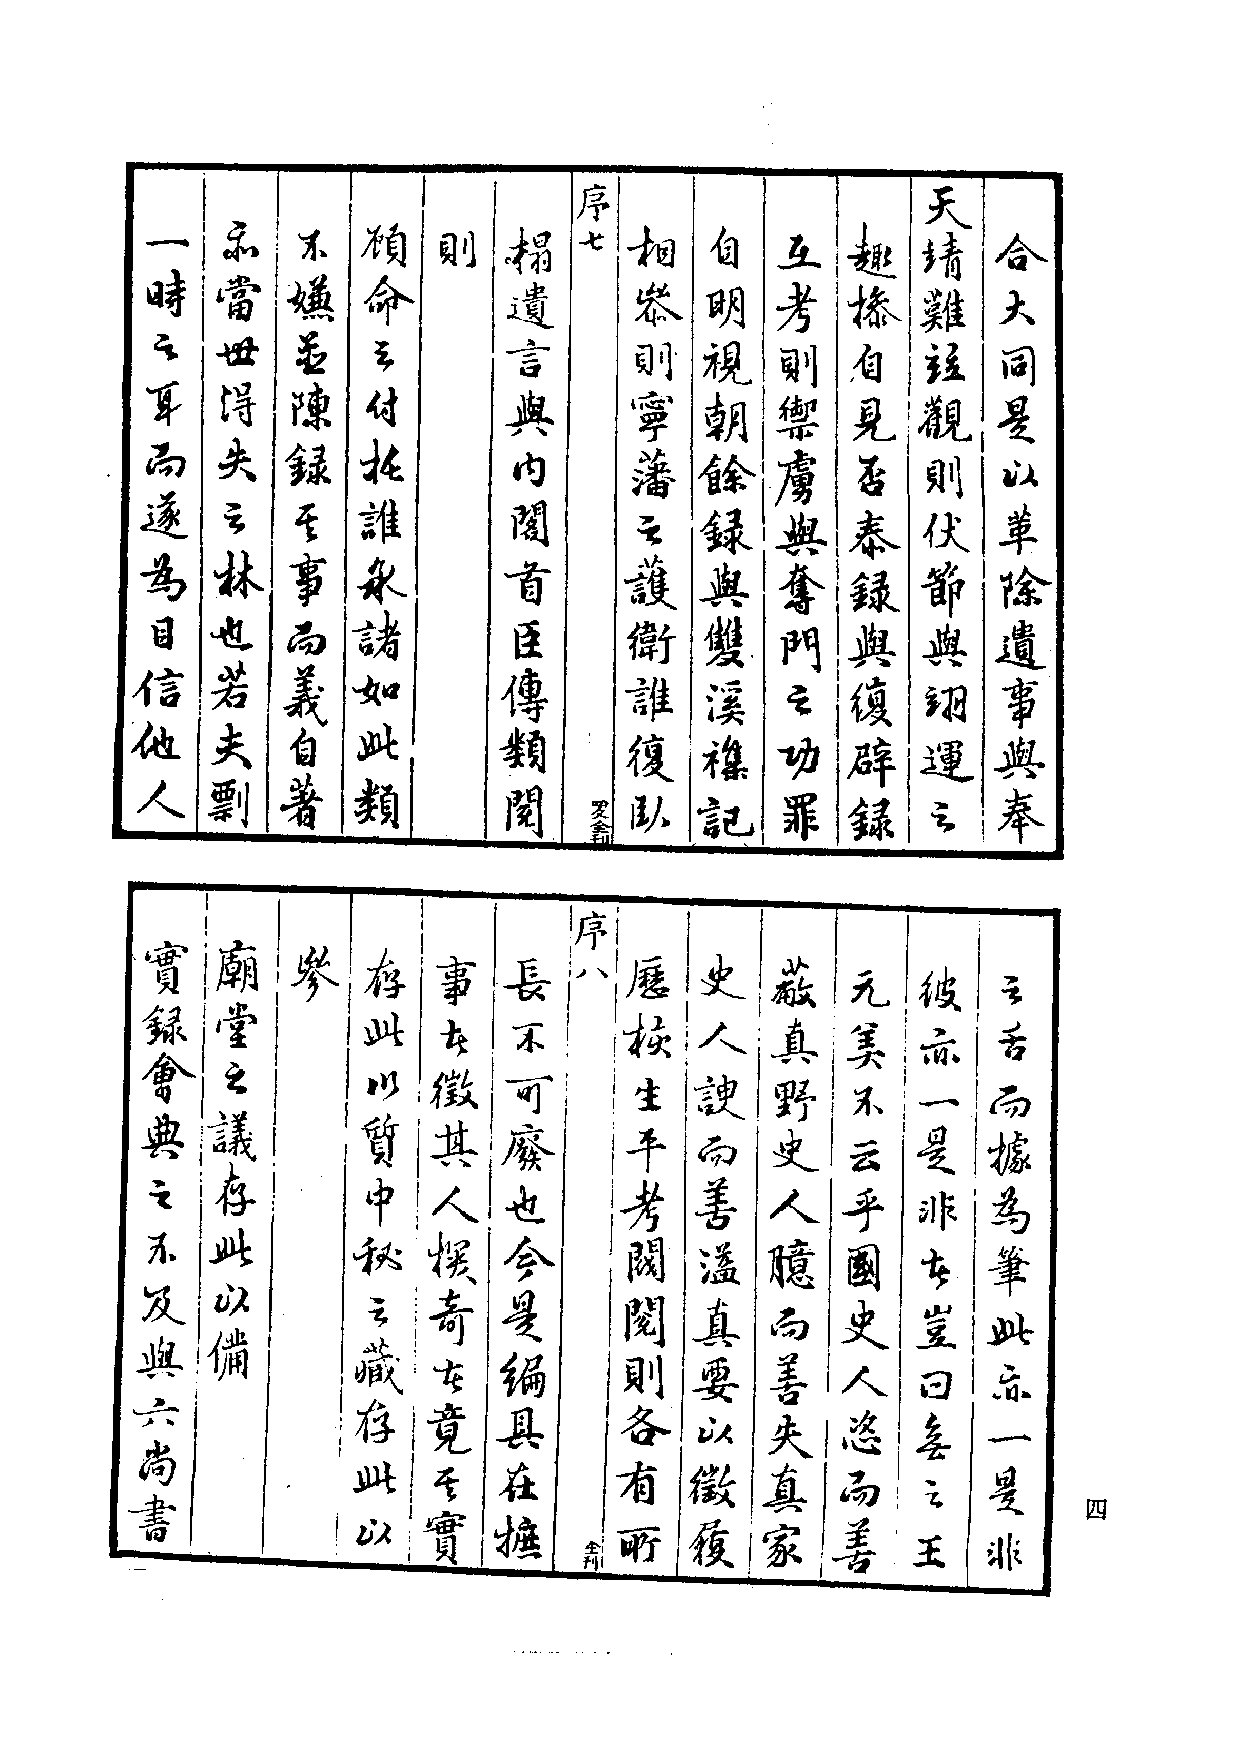 合大同是以革除遺事與奉
天靖難並觀則伏節與翊運之
趣摻自見否泰録與復辟録
互考則禦虜與奪門之功罪
自明視朝餘録與雙溪襍記
相叅則寧藩之護衛誰復臥
序七
榻遺言與內閣首臣傳類閱
則
顧命之付托誰承諸如此類
不嫌並陳録其事而義自著
亦當世得失之林也若夫剽
一時之耳而遂為目信他人
之舌而據為筆此亦一是非
彼亦一是非在豈曰無之王
元美不云乎國史人恣而善
蔽真野史人臆而善失真家
史人諛而善溢真要以徵獲
歷核生平考閥閱則各有所
序八
長不可廢也今是編具在摭
事在徵其人探奇在竟其實
存此以質中秘之藏存此以
參
廟堂之議存此以備
實録會典之不及與六尚書
四